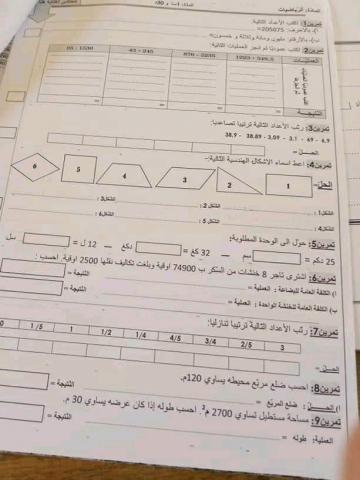 المادة: الرياضيات
المدة: 1سا و 30د
تمرين1: اكتب الأعداد التالية:
أ)- بالأحرف: 205075=
ب)- بالأرقام: مليون ومائة وثلاثة و خمسون=
تمرين2: اكتب عموديا ثم انجز العمليات التالية:
العمليات
النتيجـــة = = = =
تمرين3: رتب الأعداد التالية ترتيبا تصاعديا.
6.9 - 69 - 3.1 - 3.09 - 38.89 - 38.9
الحــل=
تمرين4: اعط اسماء الاشكال الهندسية التالية:-
الحل=
1 2 3 4 5 6
الشكل1: الشكل 2: الشكل3:
الشكل4: الشكل 5: الشكل6:
تمرين5: حول الى الوحدة المطلوبة:
25 دكم = سم — 32 كغ = دكغ — 12 ل = سل
تمرين6: اشترى تاجر 8 خنشات من السكر ب 74900 اوقية وبلغت تكاليف نقلها 2500 اوقية. احسب :
ا) الكلفة العامة للبضاعة : العملية = النتيجة =
ب) الكلفة العامة للخنشة الواحدة : العملية = النتيجة =
تمرين7: رتب الأعداد التالية ترتيبا تنازليا:
3 2/5 3/4 4/5 1/4 1/2 1 1/5 0
الحــل=
تمرين8: احسب ضلع مربع محيطه يساوي 120م.
ا) الحــل : ضلع المربع = النتيجة =
تمرين9: مساحة مستطيل تساوي 2700 م². احسب طوله إذا كان عرضه يساوي 30 م.
العملية: طوله = النتيجة =